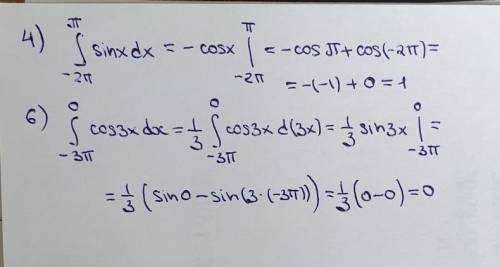 4) ∫_{-2π}^{π} sinx dx = - cosx |_{-2π}^{π} = - cos π + cos(-2π) =
= -(-1) + 0 = 1
6) ∫_{-3π}^{0} cos3x dx = 1/3 ∫_{-3π}^{0} cos3x d(3x) = 1/3 sin3x |_{-3π}^{0} =
= 1/3 (sin0 - sin(3·(-3π))) = 1/3 (0-0) = 0